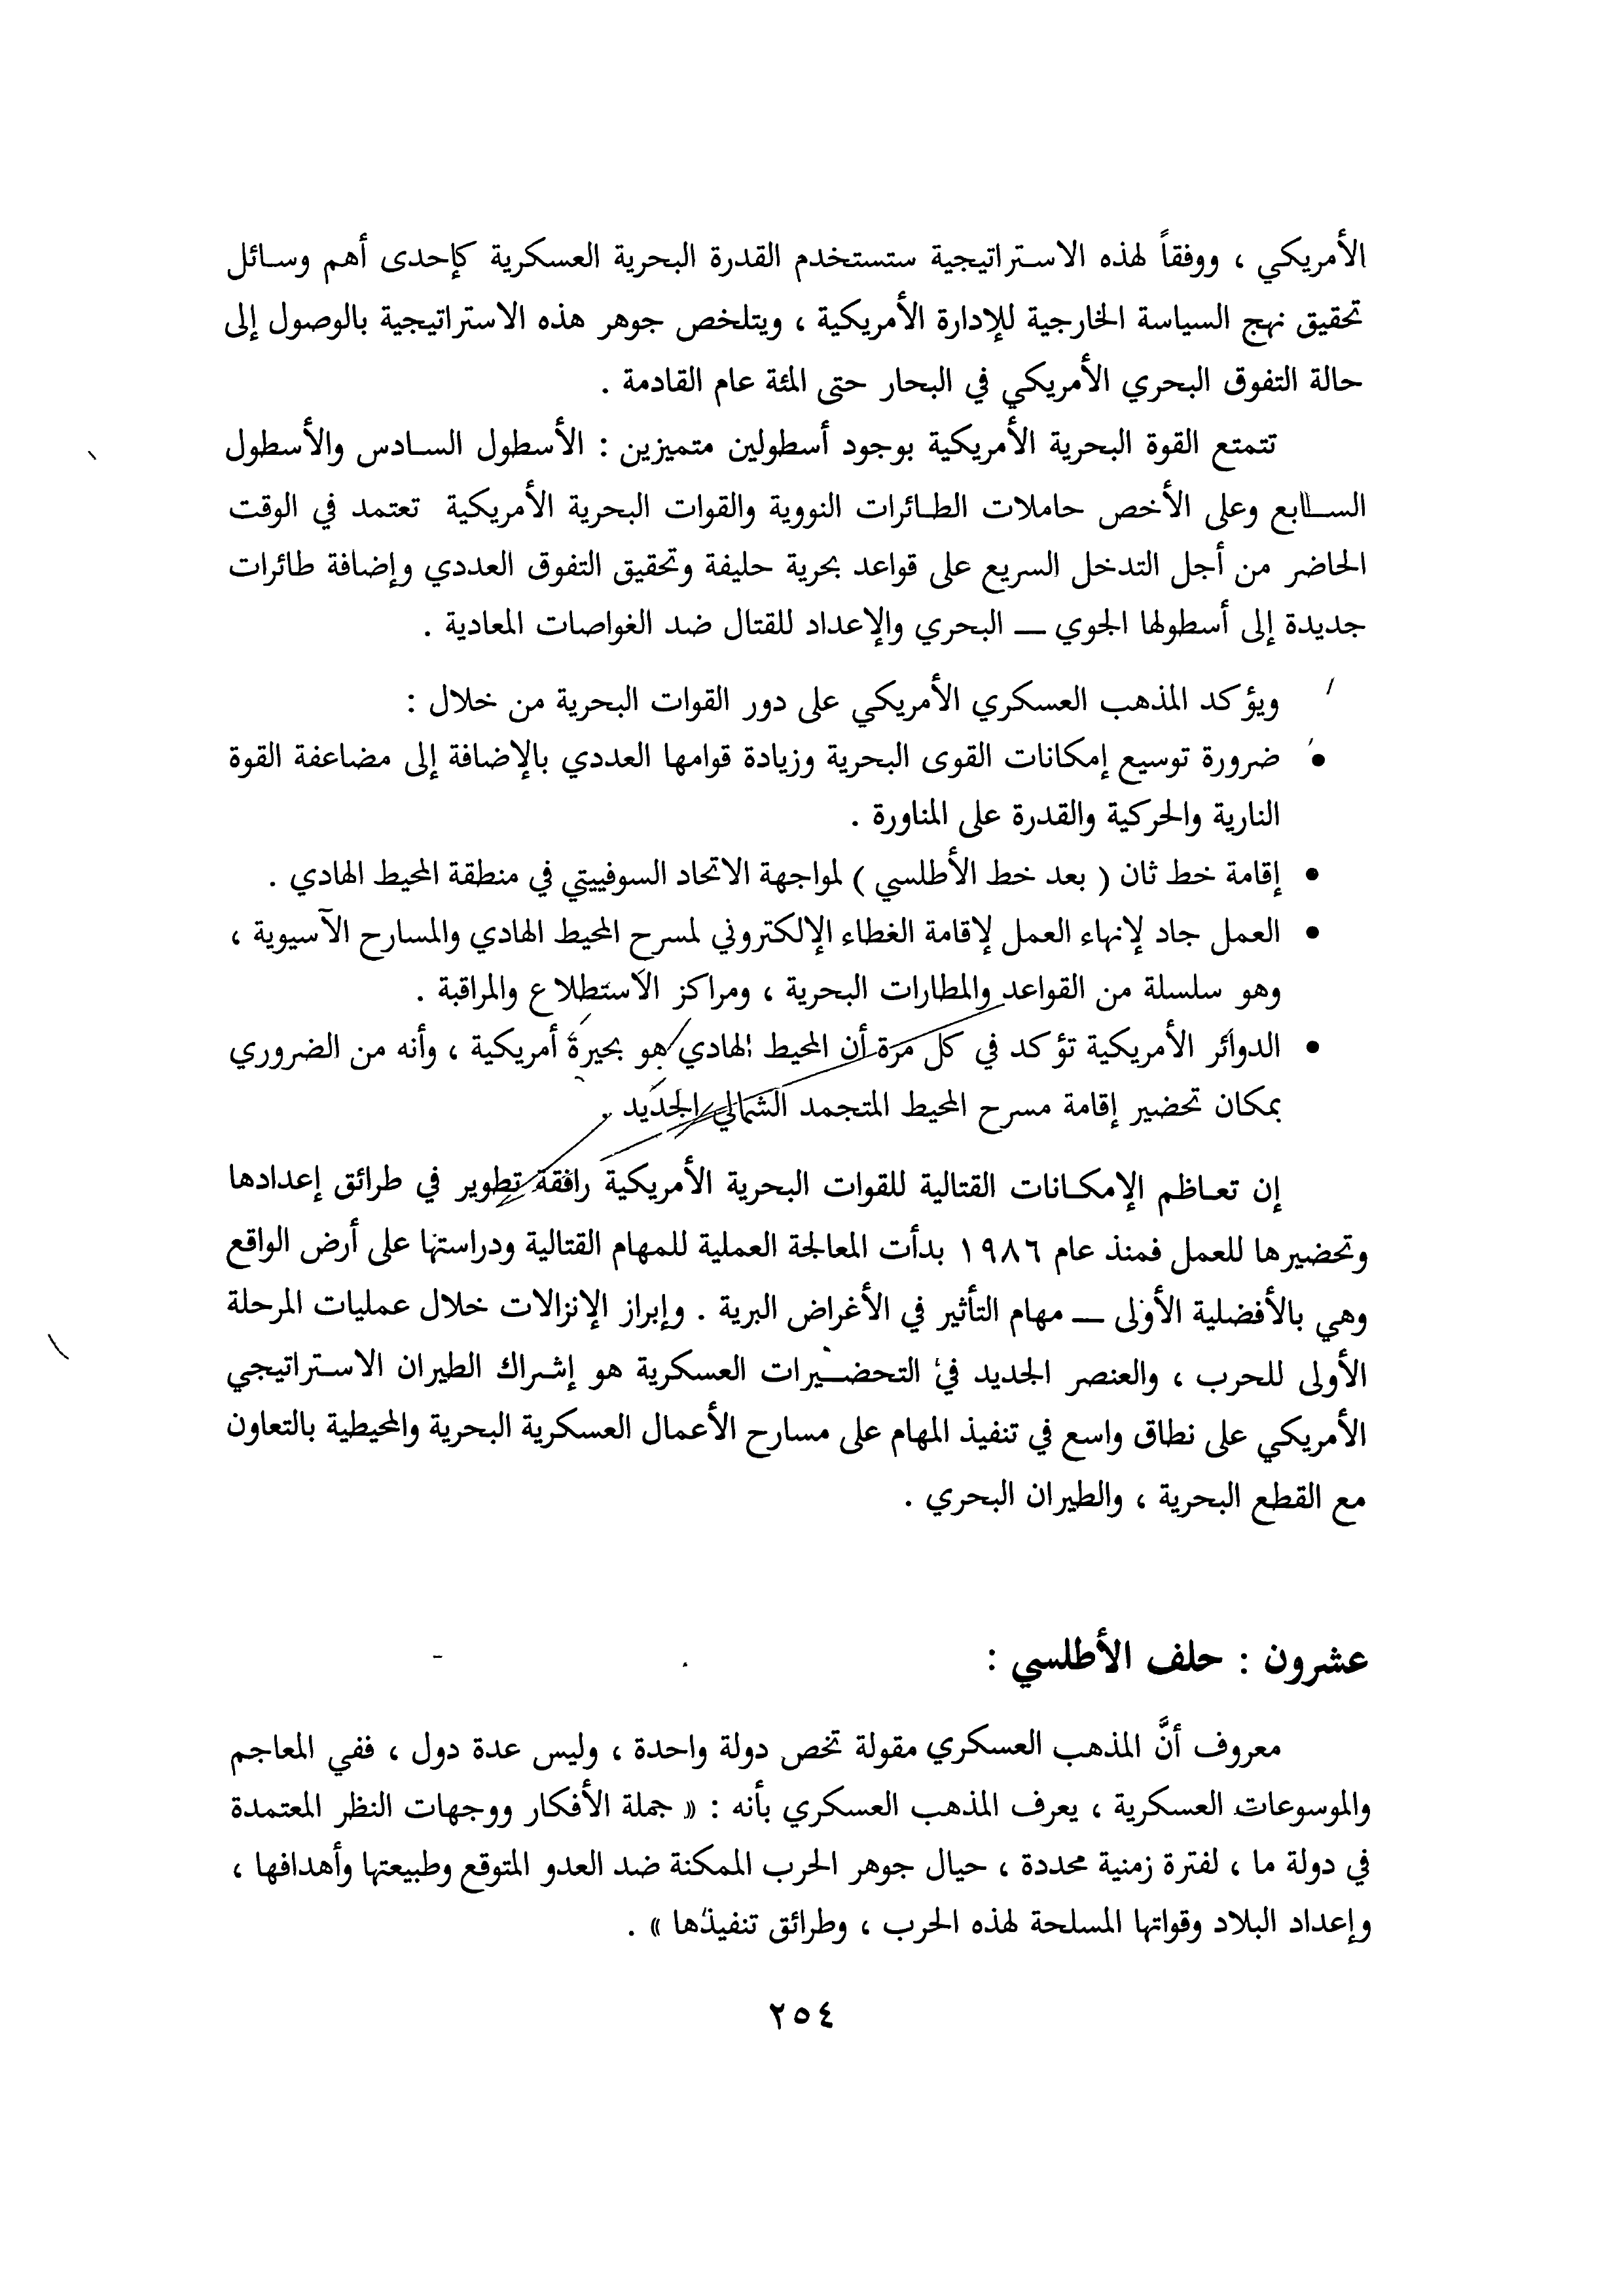 الأمريكي ، ووفقاً لهذه الاستراتيجية ستستخدم القدرة البحرية العسكرية كإحدى أهم وسائل
تحقيق نهج السياسة الخارجية للإدارة الأمريكية ، ويتلخص جوهر هذه الاستراتيجية بالوصول إلى
حالة التفوق البحري الأمريكي في البحار حتى المئة عام القادمة .
تتمتع القوة البحرية الأمريكية بوجود أسطولين متميزين : الأسطول السادس والأسطول
السابع وعلى الأخص حاملات الطائرات النووية والقوات البحرية الأمريكية تعتمد في الوقت
الحاضر من أجل التدخل السريع على قواعد بحرية حليفة وتحقيق التفوق العددي وإضافة طائرات
جديدة إلى أسطولها الجوي — البحري والإعداد للقتال ضد الغواصات المعادية .
ويؤكد المذهب العسكري الأمريكي على دور القوات البحرية من خلال :
• ضرورة توسيع إمكانات القوى البحرية وزيادة قوامها العددي بالإضافة إلى مضاعفة القوة
النارية والحركية والقدرة على المناورة .
• إقامة خط ثان ( بعد خط الأطلسي ) لمواجهة الاتحاد السوفييتي في منطقة المحيط الهادي .
• العمل جاد لإنهاء العمل لإقامة الغطاء الإلكتروني لمسرح المحيط الهادي والمسارح الآسيوية ،
وهو سلسلة من القواعد والمطارات البحرية ، ومراكز الاستطلاع والمراقبة .
• الدوائر الأمريكية تؤكد في كل مرة أن المحيط الهادي هو بحيرة أمريكية ، وأنه من الضروري
بمكان تحضير إقامة مسرح المحيط المتجمد الشمالي الجديد .
إن تعاظم الإمكانات القتالية للقوات البحرية الأمريكية رافقة تطوير في طرائق إعدادها
وتحضيرها للعمل فمنذ عام ١٩٨٦ بدأت المعالجة العملية للمهام القتالية ودراستها على أرض الواقع
وهي بالأفضلية الأولى — مهام التأثير في الأغراض البرية . وإبراز الإنزالات خلال عمليات المرحلة
الأولى للحرب ، والعنصر الجديد في التحضيرات العسكرية هو إشراك الطيران الاستراتيجي
الأمريكي على نطاق واسع في تنفيذ المهام على مسارح الأعمال العسكرية البحرية والمحيطية بالتعاون
مع القطع البحرية ، والطيران البحري .
عشرون : حلف الأطلسي :
معروف أنَّ المذهب العسكري مقولة تخص دولة واحدة ، وليس عدة دول ، ففي المعاجم
والموسوعات العسكرية ، يعرف المذهب العسكري بأنه : « جملة الأفكار ووجهات النظر المعتمدة
في دولة ما ، لفترة زمنية محددة ، حيال جوهر الحرب الممكنة ضد العدو المتوقع وطبيعتها وأهدافها ،
وإعداد البلاد وقواتها المسلحة لهذه الحرب ، وطرائق تنفيذها » .
٢٥٤